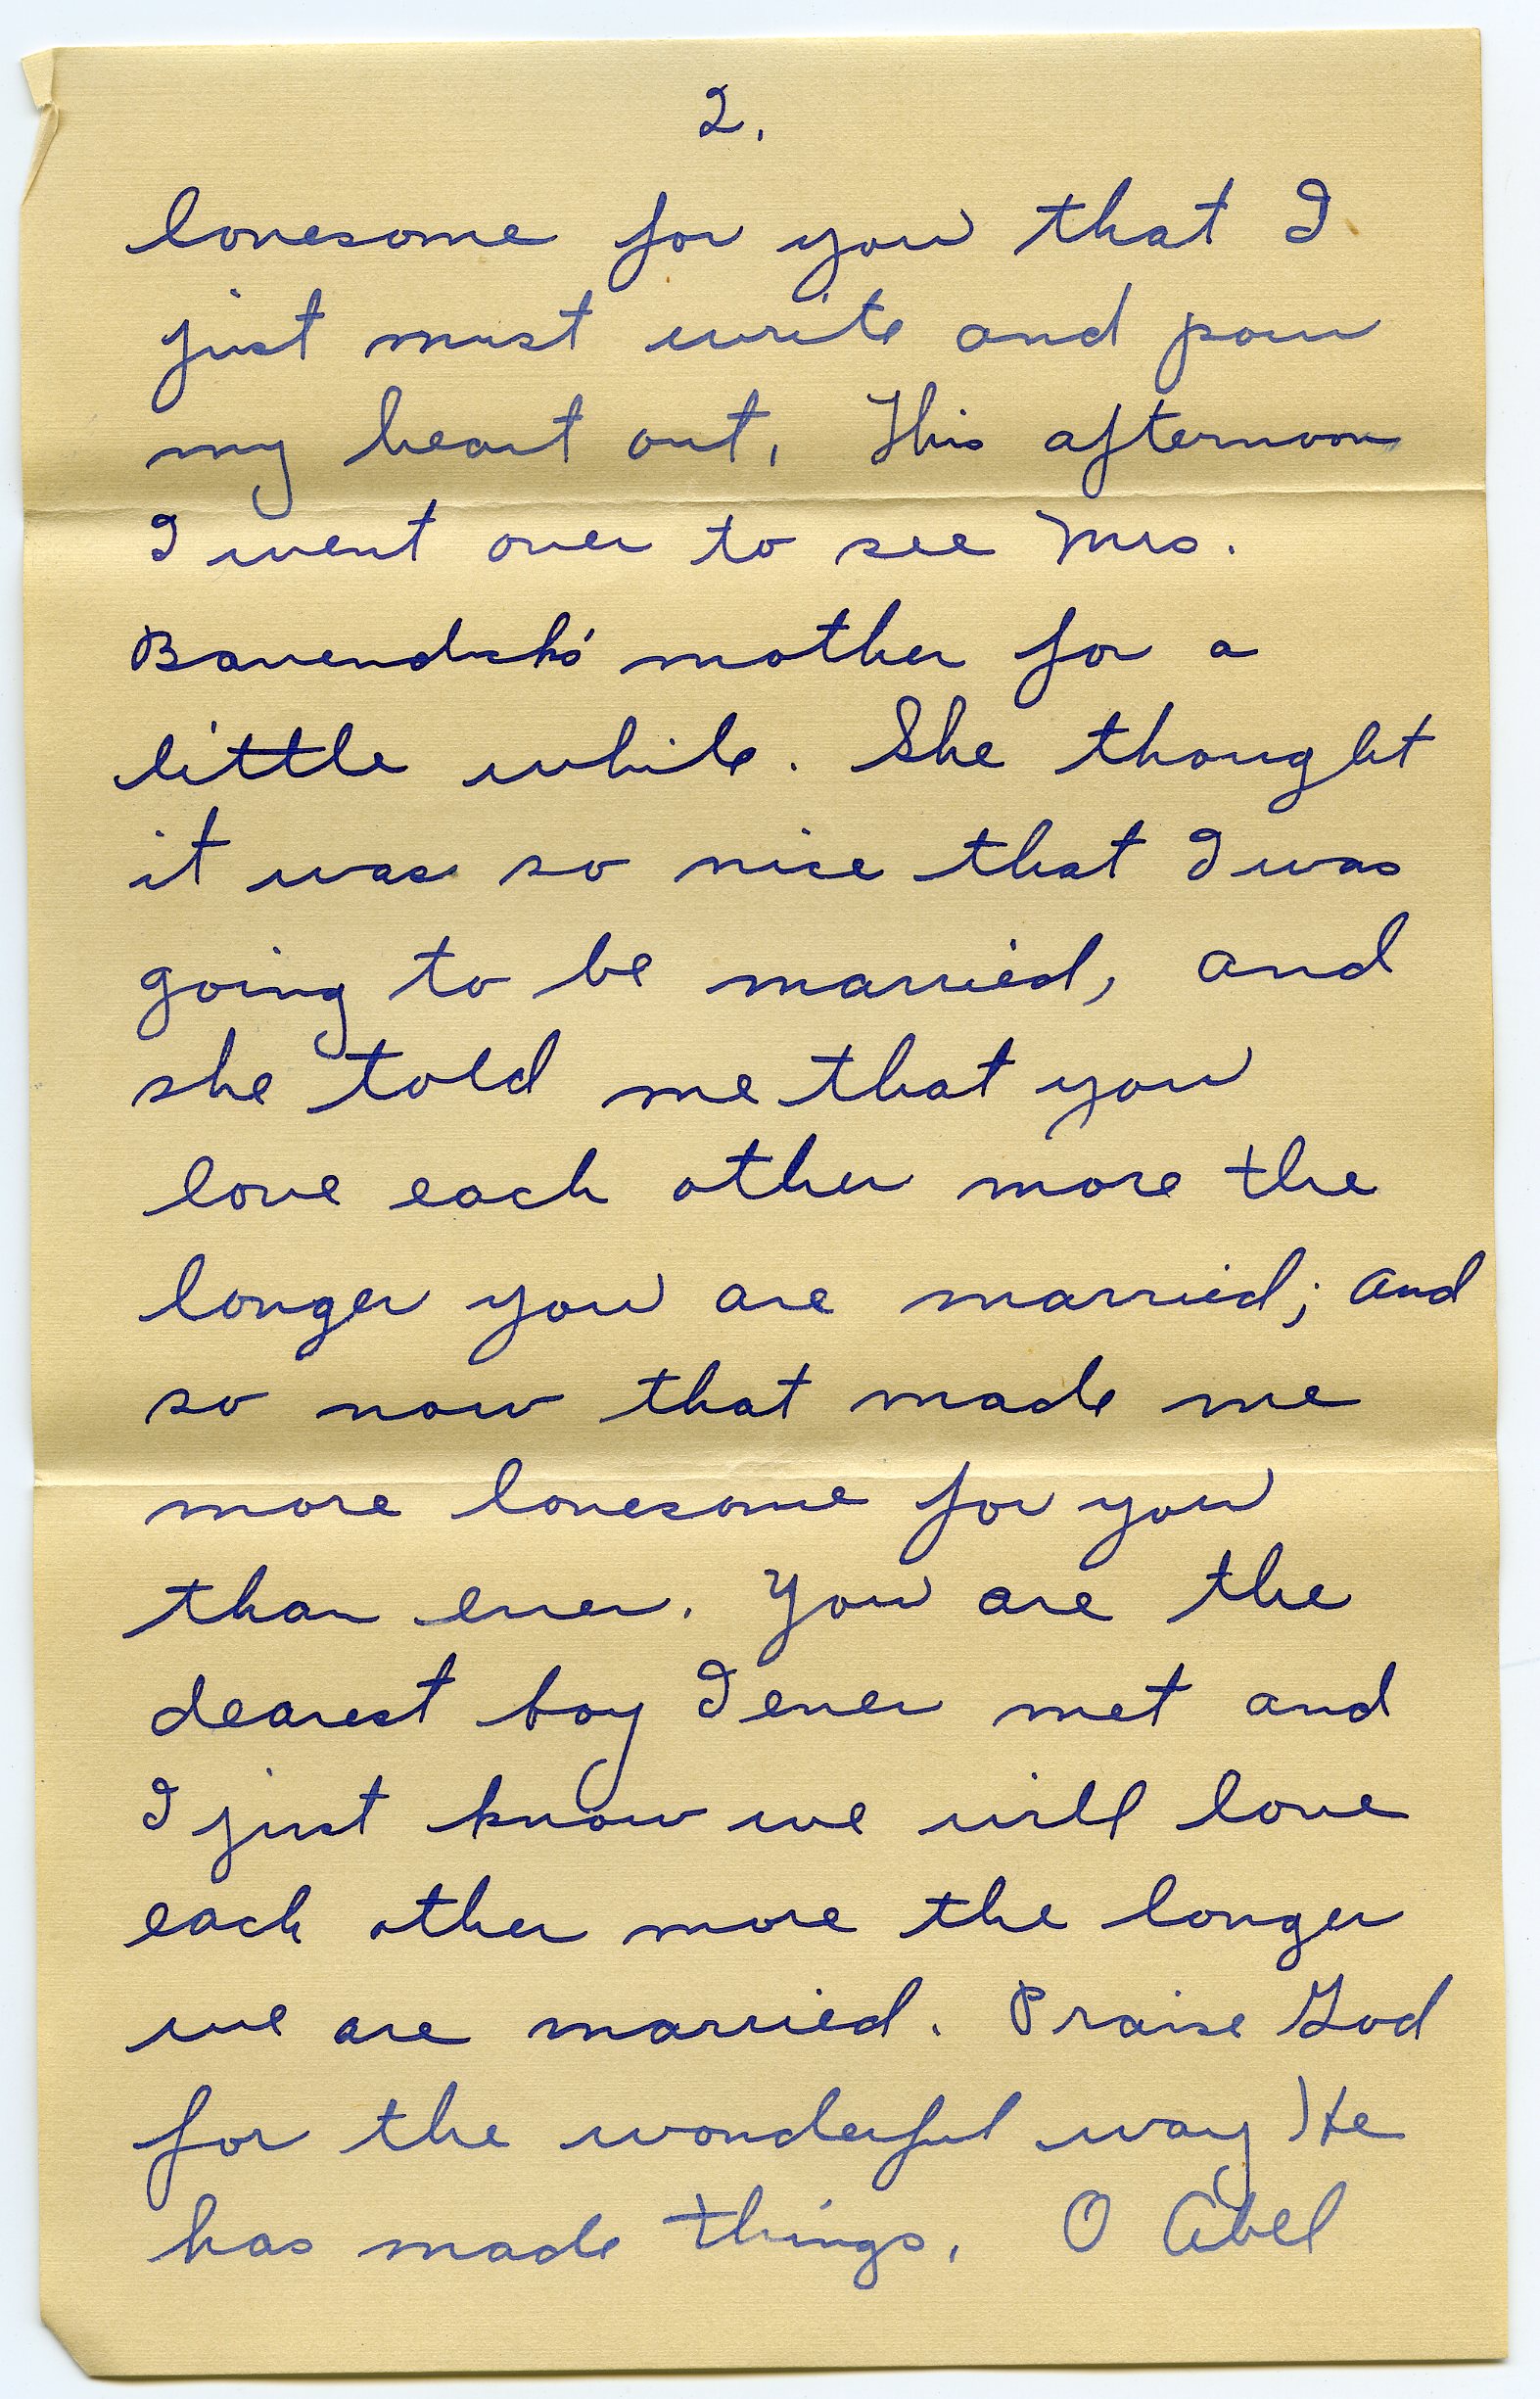 2.
lonesome for you that I
just must write and pour
my heart out. This afternoon
I went over to see Mrs.
mother for a
little while. She thought
it was so nice that I was
going to be married, and
she told me that you
love each other more the
longer you are married; and
so now that made me
more lonesome for you
than ever. You are the
dearest boy I ever met and
I just know we will love
each other more the longer
we are married. Praise God
for the wonderful way He
has made things. O Abel